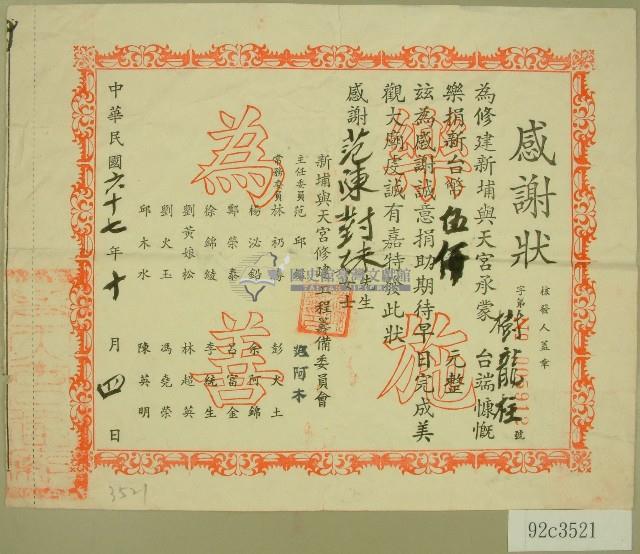 感謝狀
核發人蓋章
字第
樹龍柱
號
為修建新埔與天宮承蒙 台端慷慨
樂捐新台幣伍佰 元整
玆為感謝誠意捐助期待早日完成美
觀大廟虔誠有嘉特發此狀
感謝
范陳對妹
新埔與天宮修建工程籌備委員會
主任委員 范邱
范阿木
常務委員 林礽
彭火土
楊泌鉛
余阿錦
鄭榮泰
呂富金
徐錦綾
李統生
劉黃娘松
林超英
劉火玉
馮堯榮
邱木水
陳英明
中華民國六十七年十月四日
樂施
為善
3521
92c3521